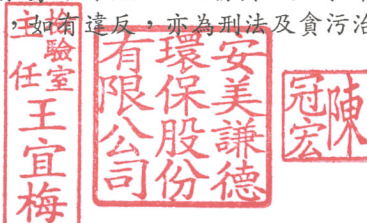 ，如有違反，亦為刑法及貪污治
檢驗室
主任 王宜梅
安美謙德
環保股份
有限公司
陳冠宏